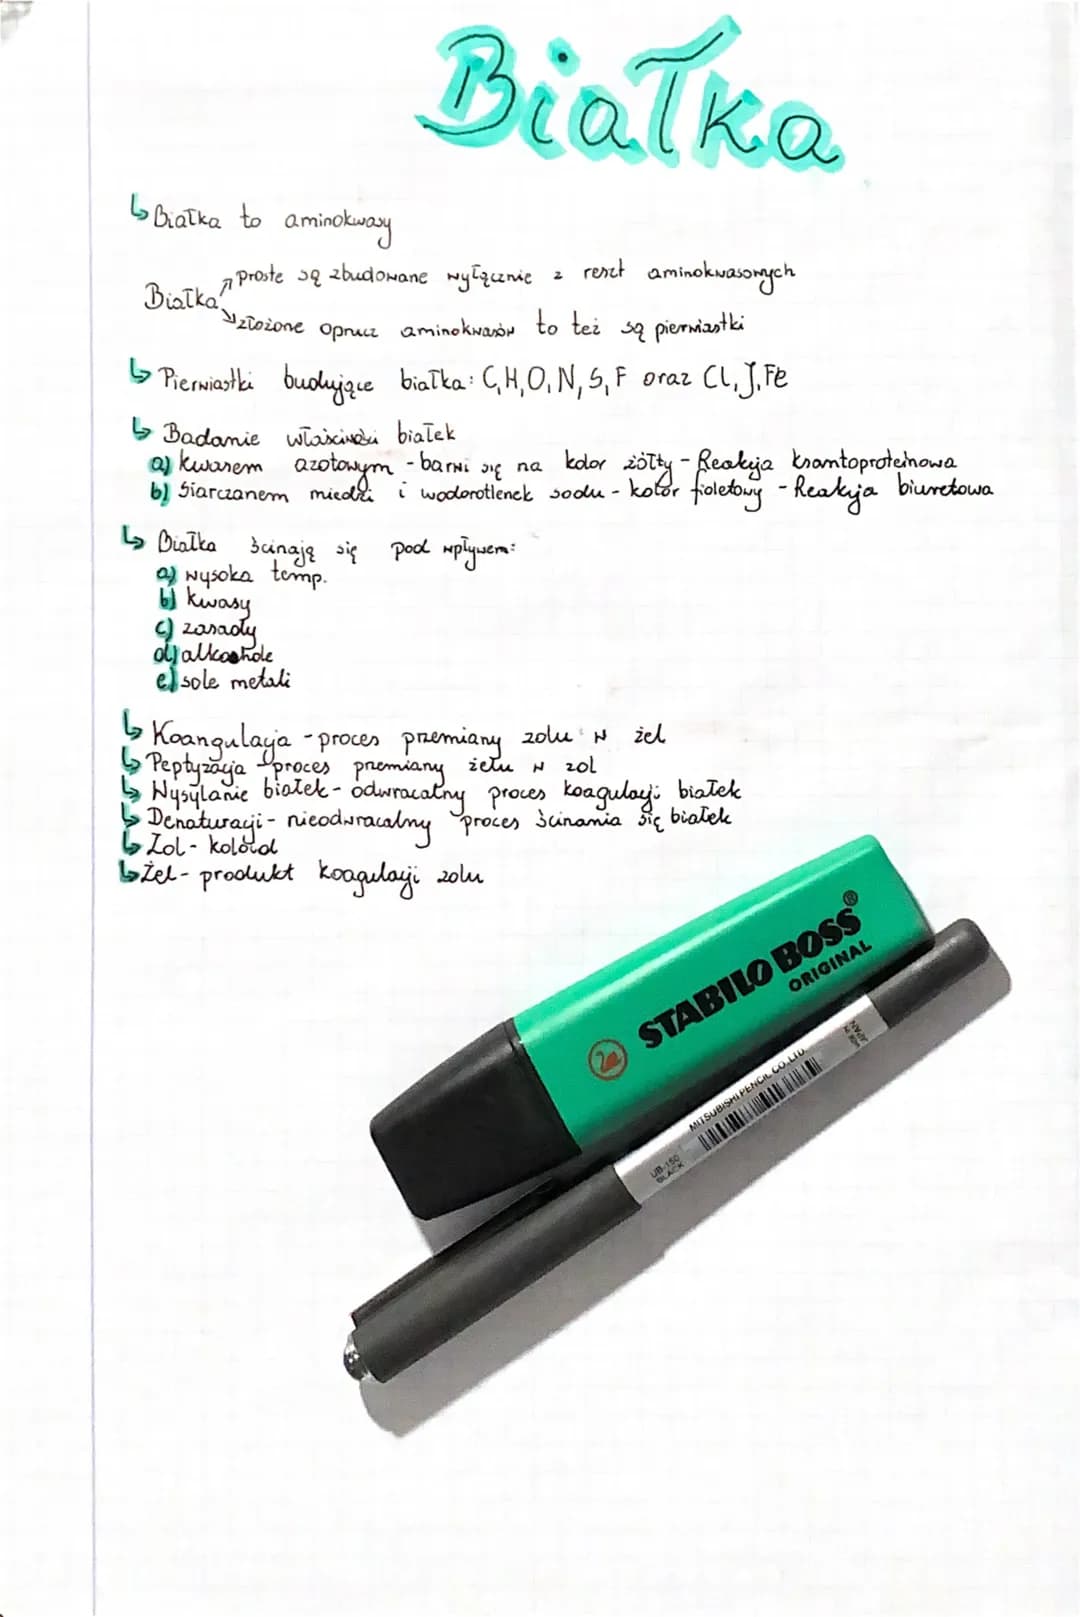 Białka
↳ Białka to aminokwasy
Białka
↗ proste są zbudowane wyłącznie z reszt aminokwasonych
↘ złożone oprucz aminokwasów to też są pierwiastki
↳ Pierwiastki budujące białka: C, H, O, N, S, F oraz Cl, J, Fe
↳ Badanie właściwości białek
a) kwasem azotowym - barwi się na kolor żółty - Reakcja ksantoproteinowa
b) Siarczanem miedzi i wodorotlenek sodu - kolor fioletowy - Reakcja biuretowa
↳ Białka ścinają się pod wpływem:
a) wysoka temp.
b) kwasy
c) zasady
d) alkohole
e) sole metali
↳ Koangulacja - proces przemiany zolu w żel
↳ Peptyzacja - proces przemiany żelu w zol
↳ Wysylanie białek - odwracalny proces koagulacji białek
↳ Denaturacji - nieodwracalny proces ścinania się białek
↳ Zol - koloid
↳ Żel - produkt koagulacji zolu
STABILO BOSS®
ORIGINAL
MITSUBISHI PENCIL CO., LTD.
UB-150
BLACK
JAPAN